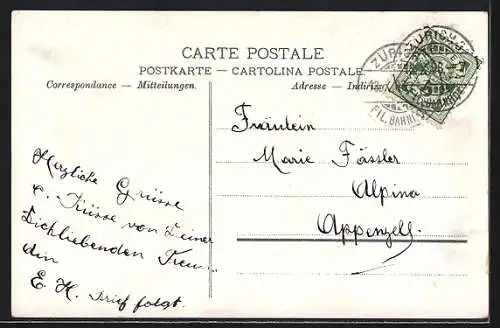 CARTE POSTALE
POSTKARTE – CARTOLINA POSTALE
Correspondance – Mitteilungen.
Adresse –
ZÜRICH
FIL. BAHNH
Fräulein
Marie Fässler
Alpina
Appenzell.
Herzliche Grüsse
u. Küsse von Deiner
Dichliebenden
E. H. Brief folgt.